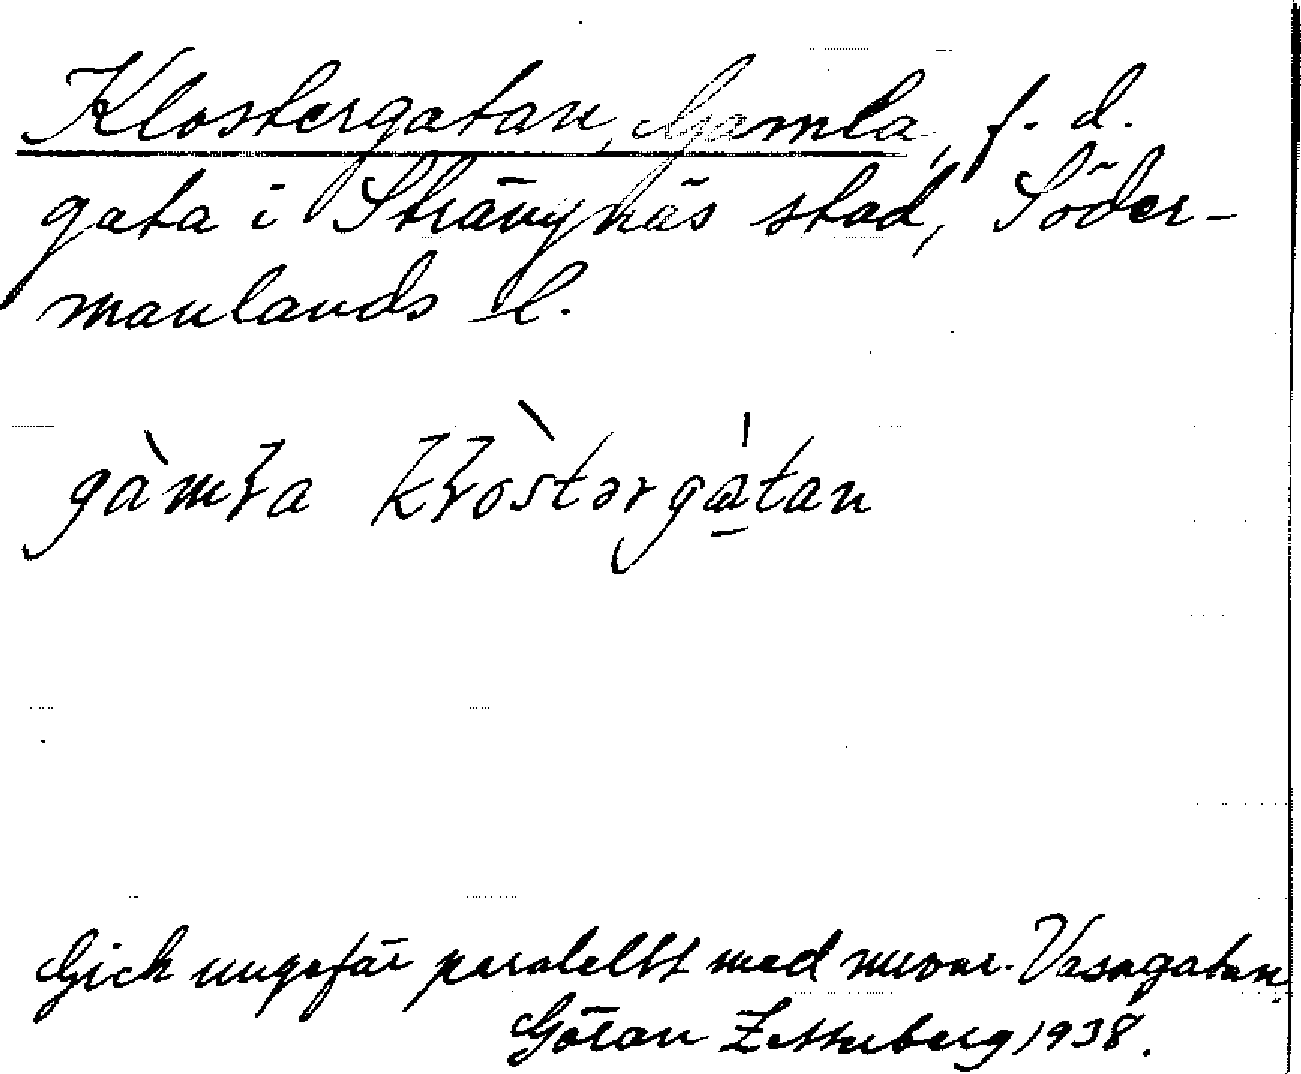 Klostergatan, Gamla, f. d.
gata i Strängnäs stad, Söder-
manlands l.
gàmɽa kɽòstərgátan
Gick ungefär parallellt med nuvar. Vasagatan.
Göran Zetterberg 1938.